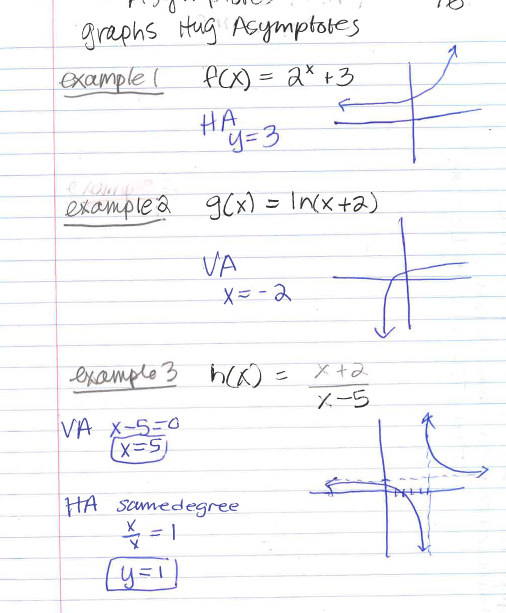 graphs Hug Asymptotes
example 1 f(x) = 2^x + 3
HA
y = 3
example 2 g(x) = ln(x+2)
VA
x = -2
example 3 h(x) = x+2 / x-5
VA x-5=0
x=5
HA same degree
x/x = 1
y=1